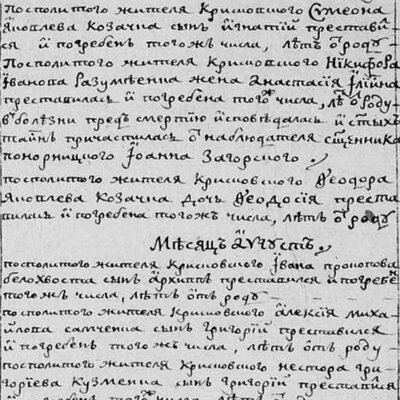 посполитого жителя Крисковского Сумеона
Яковлева Козачка сынъ Игнатїй престави-
ся и погребенъ того жъ числа, лѣтъ ѿ роду
Посполитого жителя Крисковского Никифора
Иванова Разумѣенка жена Анастасїя Илїина
преставилась и погребена тогожъ числа, лѣ ѿ роду
в болезни предъ смертїю исповѣдалась и стыхъ
таинъ причастилась ѿ наблюдателя сщенника
понорницкого Іоанна Загорского
посполитого жителя Крисковского Феодора
Яковлева Козачка дочь Феодосїя преста-
вилась и погребена тогожъ числа, лѣтъ ѿ роду
Мѣсяцъ Августъ
посполитого жителя Крисковского Ивана прокопова
белохвоста сынъ Архипъ преставился и погребен
того жъ числа, лѣтъ отъ роду
посполитого жителя Крисковского Алексїя миха-
илова самченка сынъ григорїй преставился
и погребенъ того жъ числа, лѣтъ отъ роду
посполитого жителя Крисковского нестора гри-
горїева Кузменка сынъ григорїй преставился
и погребенъ того жъ числа лѣтъ отъ роду